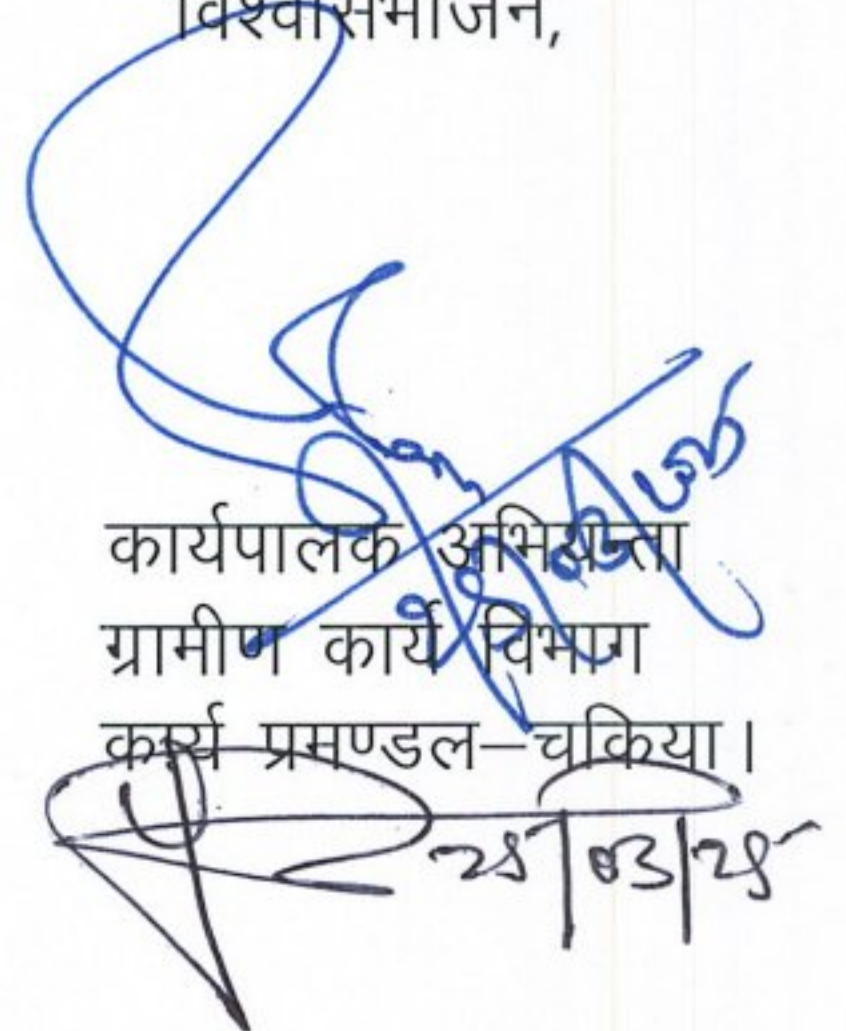 विश्वासभाजन,
कार्यपालक अभियन्ता
ग्रामीण कार्य विभाग
कार्य प्रमण्डल–चकिया।
25/03/25